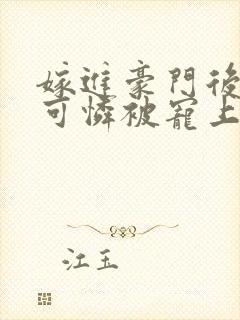 嫁進豪門後
可憐被寵上
江玉